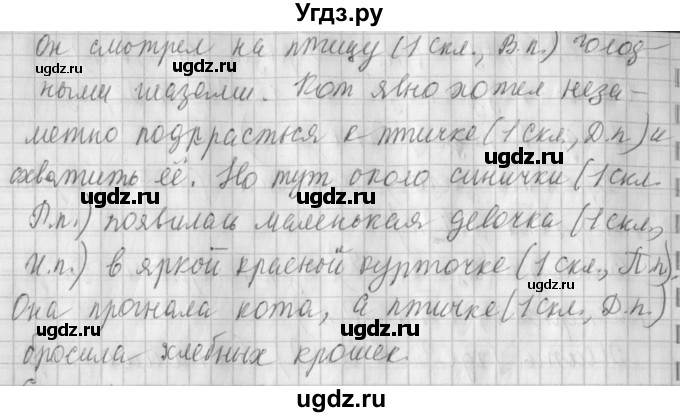 Угдз.ру
Он смотрел на птицу (1 скл., В.п.) голод-
ными глазами. Кот явно хотел неза-
метно подкрасться к птичке (1 скл., Д.п.) и
схватить её. Но тут около синички (1 скл.
П.п.) появилась маленькая девочка (1 скл.,
И.п.) в яркой красной курточке (1 скл., П.п).
Она прогнала кота, а птичке (1 скл., Д.п.)
бросила хлебных крошек.
ugdz.ru
ugdz.ru
ugdz.ru
ugdz.ru
ugdz.ru
ugdz.ru
ugdz.ru
ugdz.ru
ugdz.ru
ugdz.ru
ugdz.ru
ugdz.ru